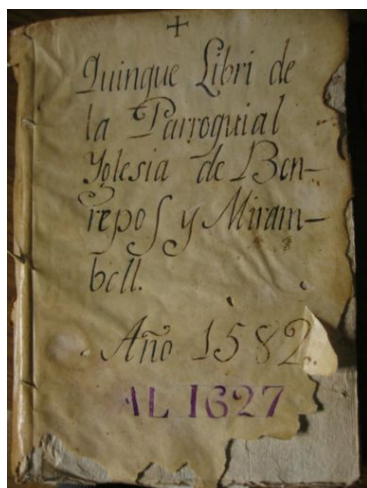 Quinque Libri de
la Parroquial
Yglesia de Bon-
repos y Miram-
bell.
Año 1582.
AL 1627